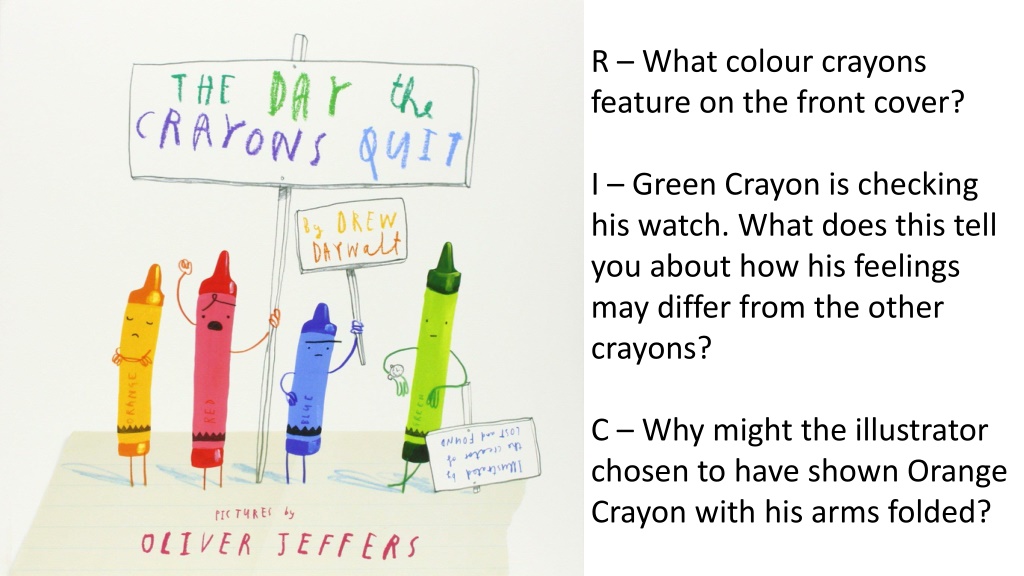 THE DAY the
CRAYONS QUIT
By DREW
DAYWALT
ORANGE
RED
BLUE
GREEN
Illustrated by
the creator of
LOST and FOUND
PICTURES by
OLIVER JEFFERS
R – What colour crayons
feature on the front cover?
I – Green Crayon is checking
his watch. What does this tell
you about how his feelings
may differ from the other
crayons?
C – Why might the illustrator
chosen to have shown Orange
Crayon with his arms folded?